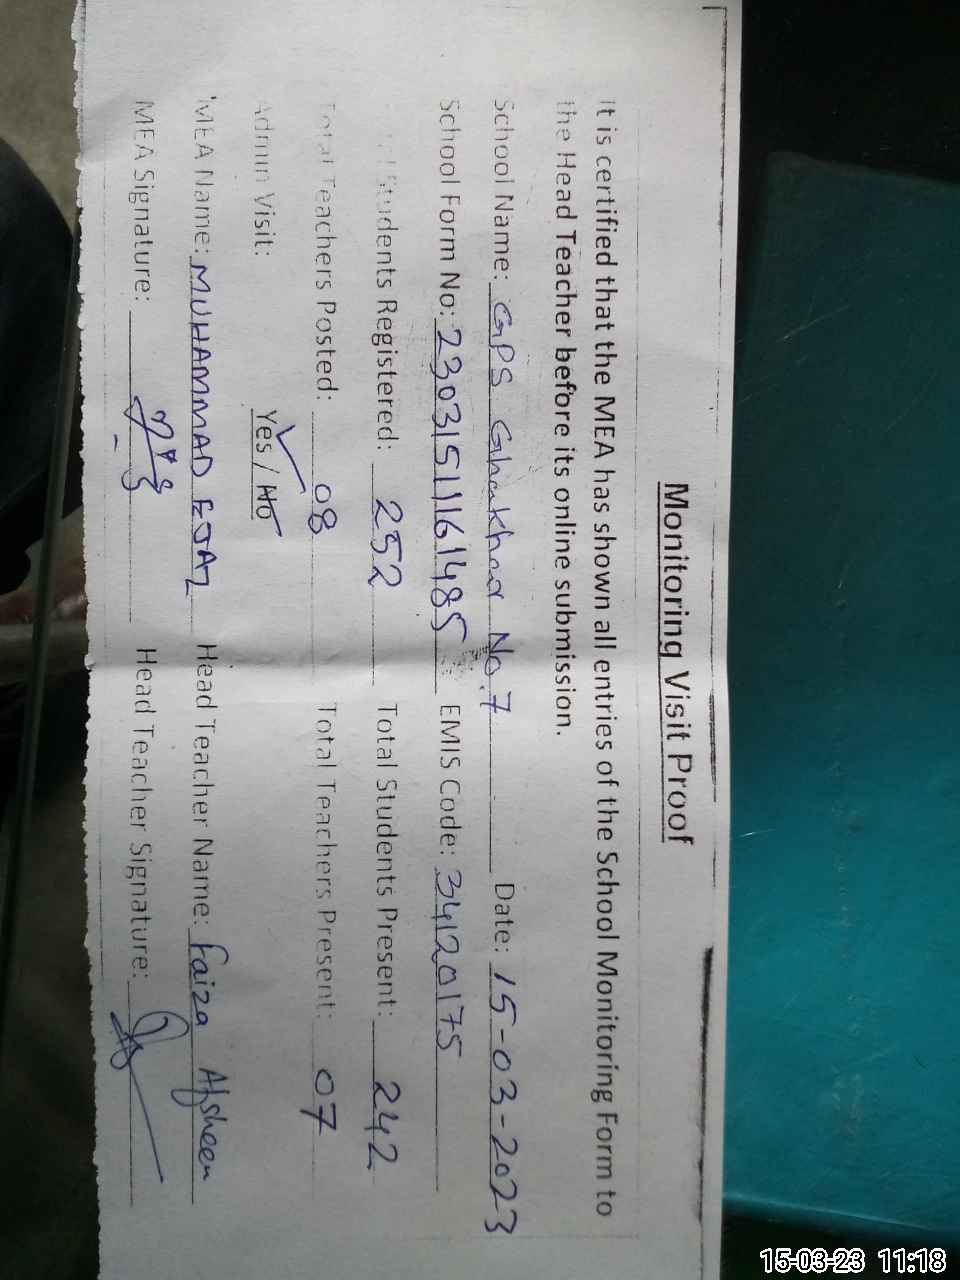 Monitoring Visit Proof
It is certified that the MEA has shown all entries of the School Monitoring Form to
the Head Teacher before its online submission.
School Name: GPS Ghakhar No.7 Date: 15-03-2023
School Form No: 23031511161485 EMIS Code: 34120175
Students Registered: 252 Total Students Present: 242
Total Teachers Posted: 08 Total Teachers Present: 07
Admin Visit: Yes / No
MEA Name: MUHAMMAD EJAZ Head Teacher Name: Faiza Afsheen
MEA Signature: Head Teacher Signature:
15-03-23 11:18